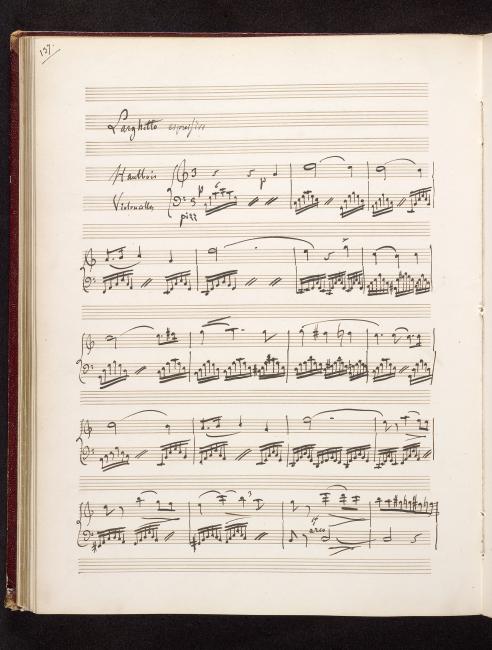 137.
Larghetto espressivo
Hautbois 3 p
Violoncello 3 6
pizz
3
arco